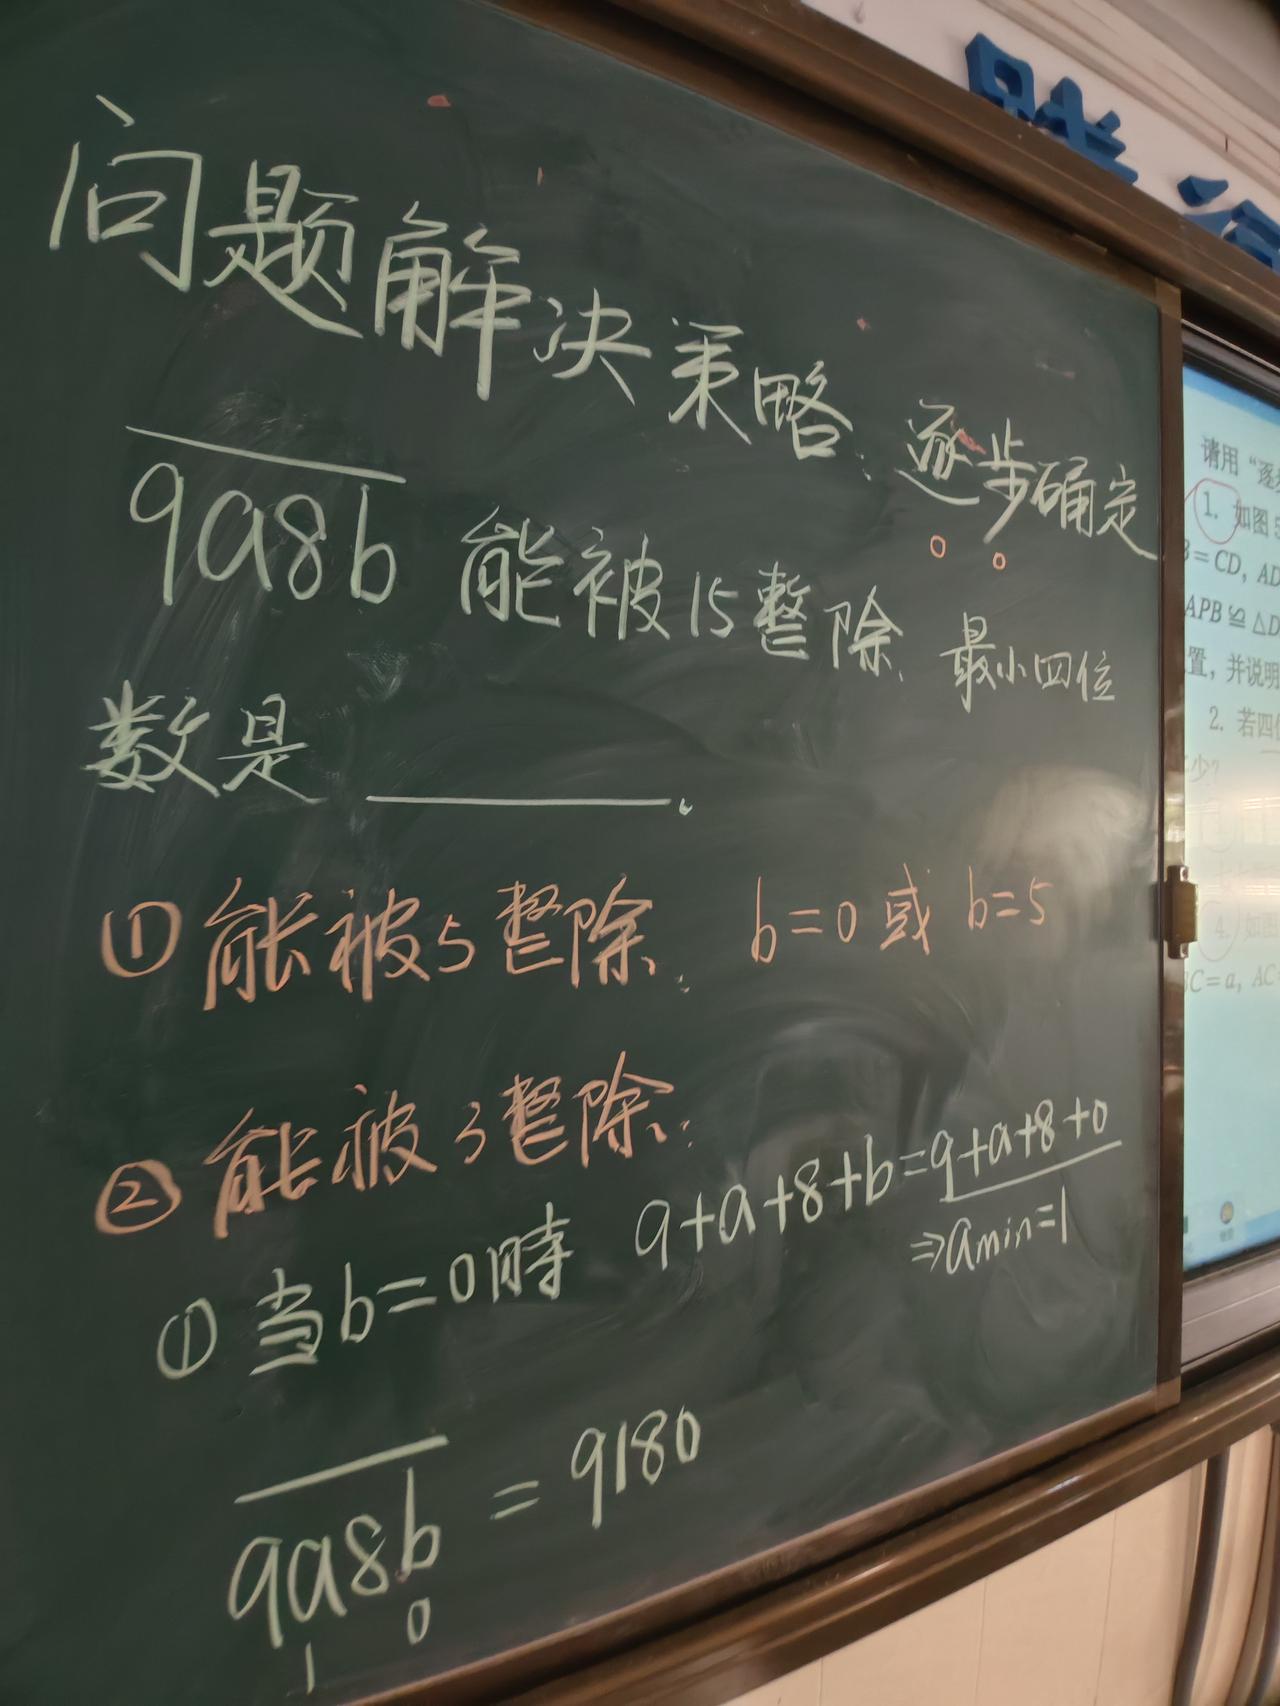 问题解决策略:逐步确定
9a8b 能被15整除, 最小四位
数是 ______.
① 能被5整除: b=0 或 b=5
② 能被3整除:
① 当b=0时 9+a+8+b=9+a+8+0
⇒amin=1
9a8b = 9180
1 0
请用“逐
1. 如图
B=CD, AD
APB≌△D
置,并说明
2. 若四位
少?
4. 如图
BC=a, AC